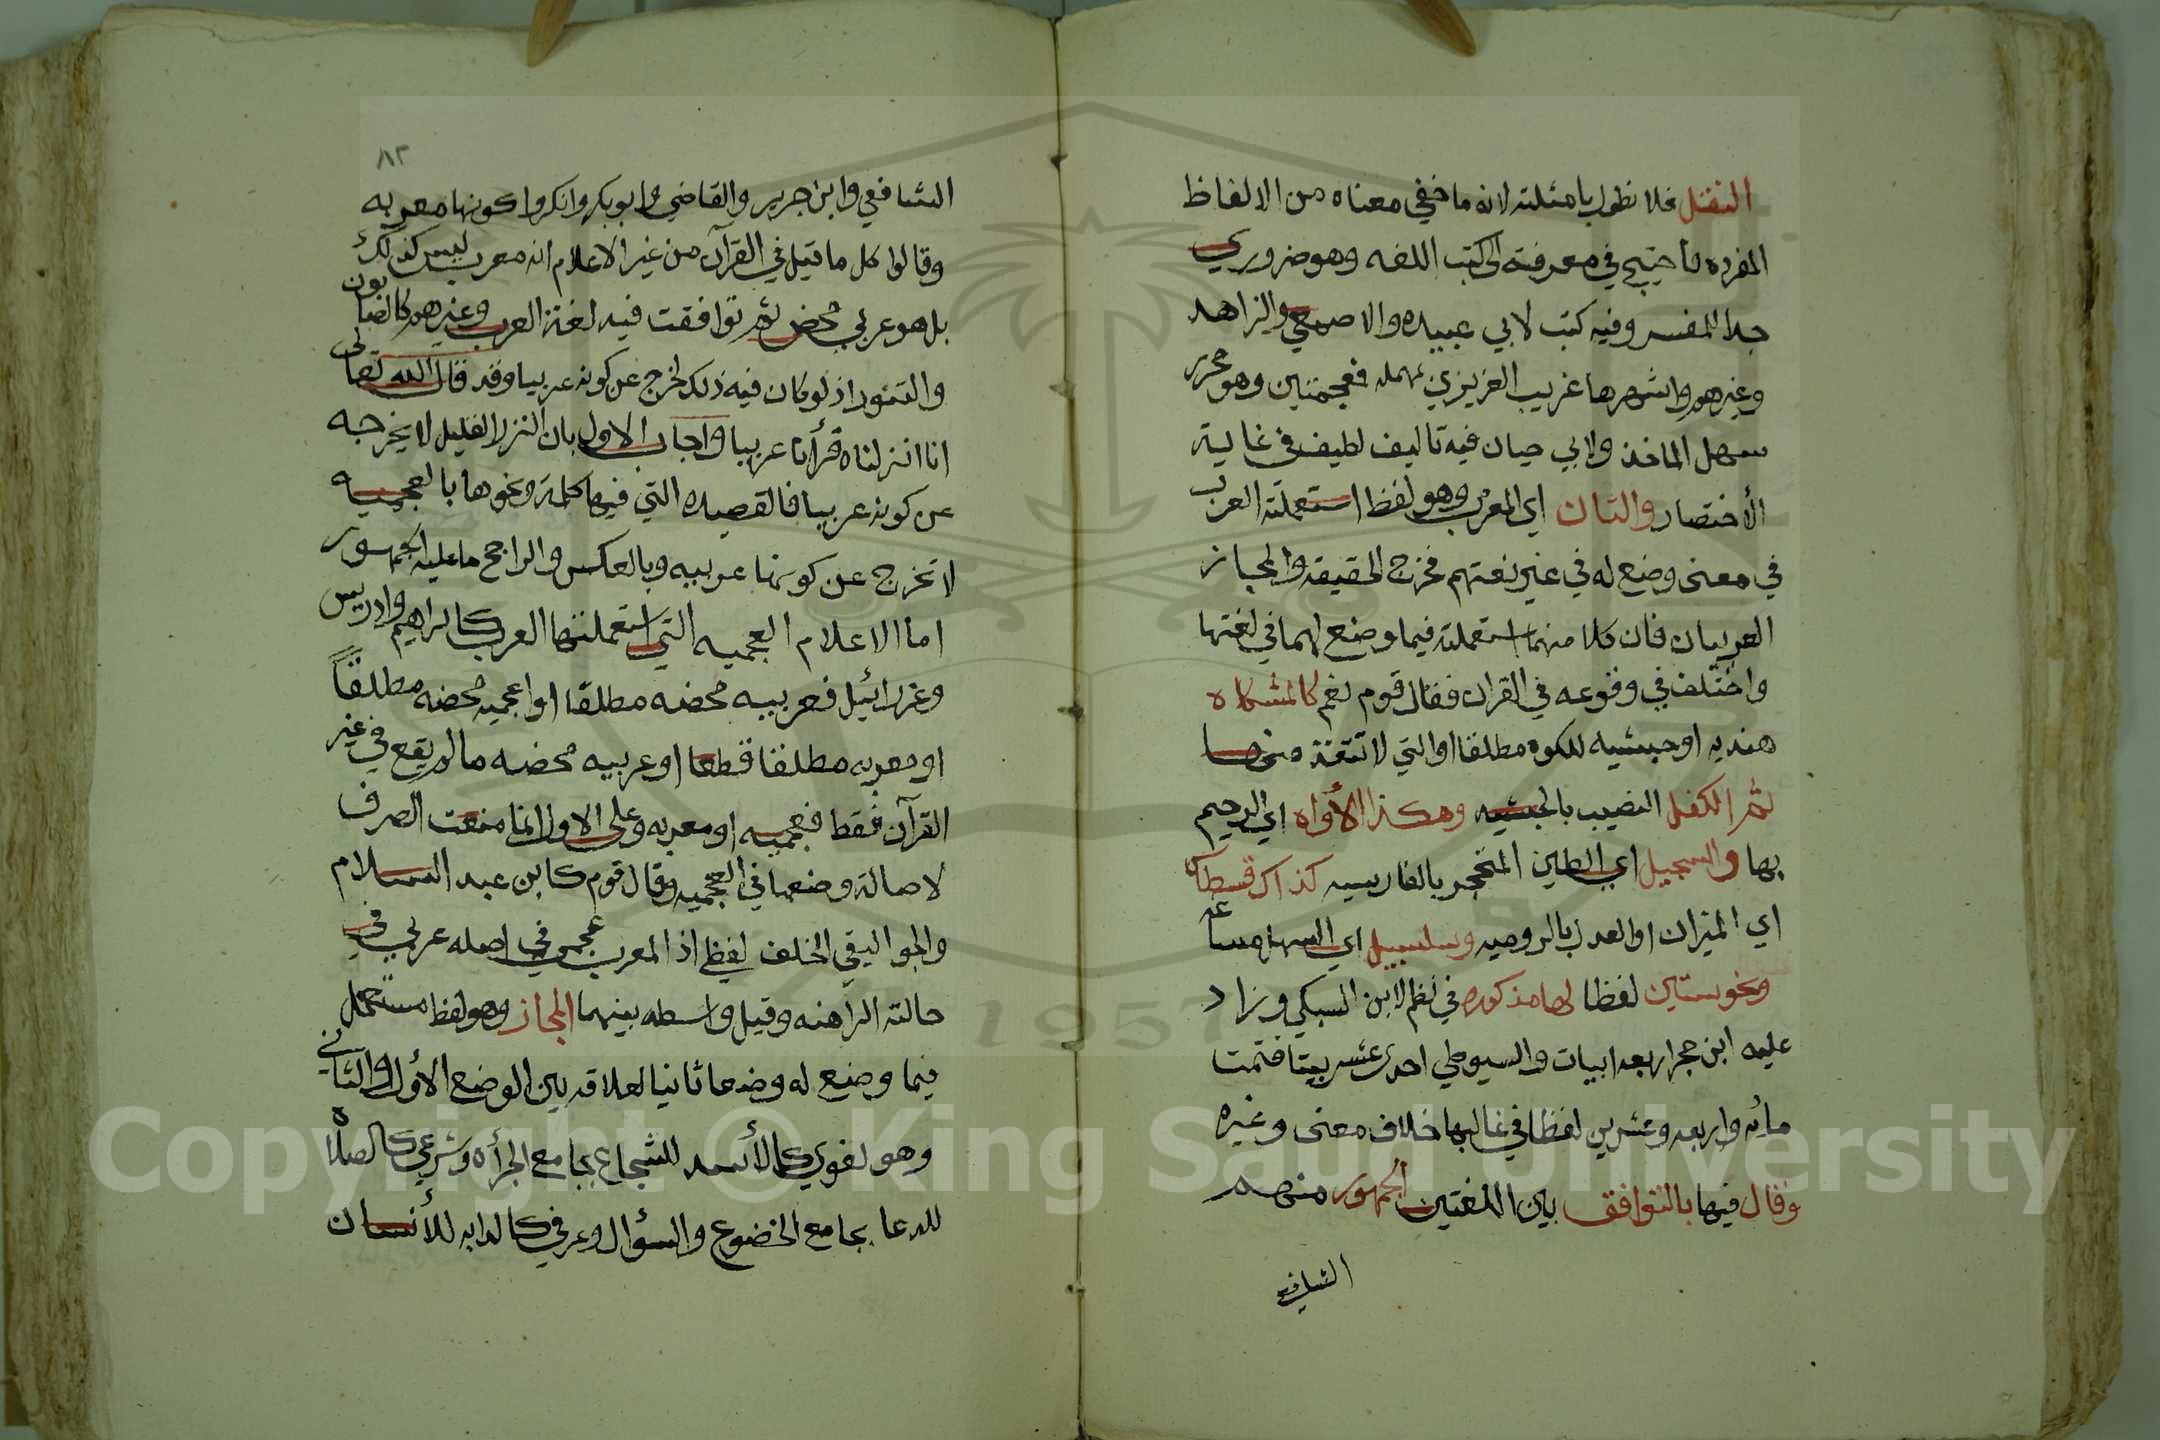 النقل فلا نطول بامثلته لانه ما خفي معناه من الالفاظ
المفرده فاحتيج في معرفته الى كتب اللغه وهو ضروري
جدا للمفسر وفيه كتب لابي عبيده والاصمعي والزاهد
وغيرهم واشهرها غريب العزيزي بمهمله فمعجمتين وهو محرر
سهل الماخذ ولابي حيان فيه تاليف لطيف في غاية
الاختصار والثان اي المعرب وهو لفظ استعملته العرب
في معنى وضع له في غير لغتهم فخرج الحقيقه والمجاز
العربيان فان كلا منهما استعملته فيما وضع لهما في لغتها
واختلف في وقوعه في القران فقال قوم نعم كالمشكاه
هنديه او حبشيه للكوه مطلقا او التي لا تنفذ منها
ثم الكفل النصيب بالحبشيه وهكذا الأواه اي الرحيم
بها والسجيل اي الطين المتحجر بالفارسيه كذاك قسطاس
اي الميزان او العدل بالروميه وسلسبيل اي السهل مساغه
ونحو ستين لفظا لها مذكوره في نظم لابن السبكي وزاد
عليه ابن حجر اربعه ابيات والسيوطي احدى عشر بيتا فتمت
مائه واربعه وعشرين لفظا في غالبها خلاف معنى وغيره
وقال فيها بالتوافق بين اللغتين الجمهور منهم
الشافعي
٨٢
الشافعي وابن جرير والقاضي وابو بكر وانكروا كونها معربه
وقالوا كل ما قيل في القرآن من غير الاعلام انه معرب ليس كذلك
بل هو عربي محض ثم توافقت فيه لغة العرب وغيرهم كالصابون
والتنور اذ لو كان فيه ذلك لخرج عن كونه عربيا وقد قال الله تعالى
انا انزلناه قرأنا عربيا واجاب الاول بان النزر القليل لا يخرجه
عن كونه عربيا فالقصيده التي فيها كلمة ونحوها بالعجميه
لا تخرج عن كونها عربيه وبالعكس والراجح ما عليه الجمهور
اما الاعلام العجميه التي استعملتها العرب كابراهيم وادريس
وعزرائيل فعربيه محضه مطلقا او اعجميه محضه مطلقاً
او معربه مطلقا قطعا او عربيه محضه ما لم يقع في غير
القرآن فقط فعجميه او معربه وعلى الاول انما منعت الصرف
لاصالة وضعها في العجميه وقال قوم كابن عبد السلام
والجواليقي الخلف لفظي اذ المعرب عجمي في اصله عربي في
حالته الراهنه وقيل واسطه بينهما المجاز وهو لفظ مستعمل
فيما وضع له وضعا ثانيا لعلاقه بين الوضع الأول والثاني
وهو لغوي كالأسد للشجاع بجامع الجرأه وشرعي كالصلاه
للدعا بجامع الخضوع والسؤال وعرفي كالدابه للأنسان
Copyright © King Saud University
1957